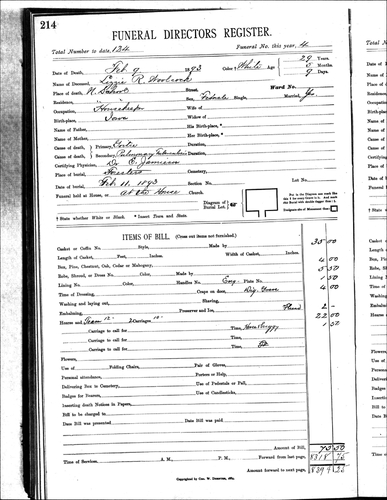 214
FUNERAL DIRECTORS REGISTER.
Total Number to date, 134 Funeral No. this year, 4
Date of Death, Feb. 9 1893 Color † White Age 29 Years
Name of Deceased, Lizzie R. 0 Months
Place of death, N. Street, 9 Days
Residence, Sex, Female Single, Ward No. Married, Yes
Occupation, Housekeeper Wife of
Birth-place, Iowa Widow of
Name of Father, His Birth-place, *
Name of Mother, Her Birth-place, *
Cause of death, Primary, Duration,
Cause of death, Secondary, Pulmonary Duration,
Certifying Physician, Dr. E. Jamison
Place of burial, Cemetery,
Date of burial, Feb. 11. 1893 Section No. Lot No.
Funeral held at House, or At the House Church.
Diagram of Burial Lot.
† State whether White or Black. * Insert Town and State.
ITEMS OF BILL. (Cross out items not furnished.)
Casket or Coffin No. Style, Made by 35 00
Length of Casket, Feet, Inches. Width of Casket, Inches.
Box, Pine, Chestnut, Oak, Cedar or Mahogany, 4 00
Robe, Shroud, or Dress No. Color, Made by 5 50
Lining No. Color, Handles No. Eng. Plate No. 1 50
Time of Dressing, Crape on door, Dig. Grave 4 00
Washing and laying out, Shaving,
Embalming, Preserver and Ice, 2 —
Hearse and Team 12. 2 Carriages 10. 22 00
Carriage to call for Time, 1 50
Carriage to call for Time,
Carriage to call for Time,
Flowers,
Use of Folding Chairs, Pair of Gloves,
Personal attendance, Porters or Help,
Delivering Box to Cemetery, Use of Pedestals or Pall,
Badges for Bearers, Use of Candlesticks,
Inserting death Notices in Papers,
Bill to be charged to
Date Bill was presented Date Bill was paid
Amount of Bill, 75 50
Time of Services, A. M., P. M., Forward from last page, 8318 75
Amount forward to next page,